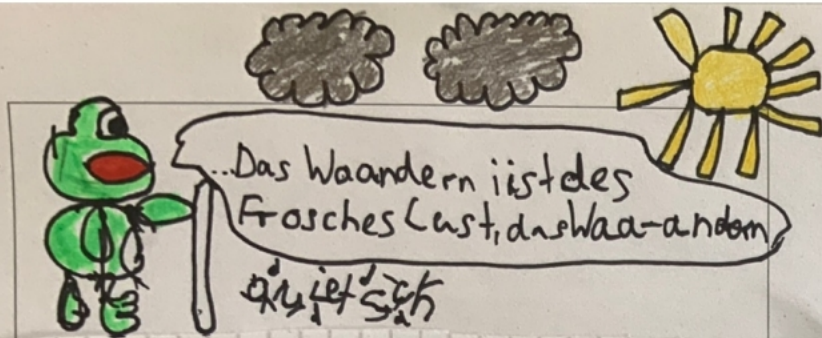 ...Das Waandern iist des
Frosches Lust, das Waa-andern
quietsch